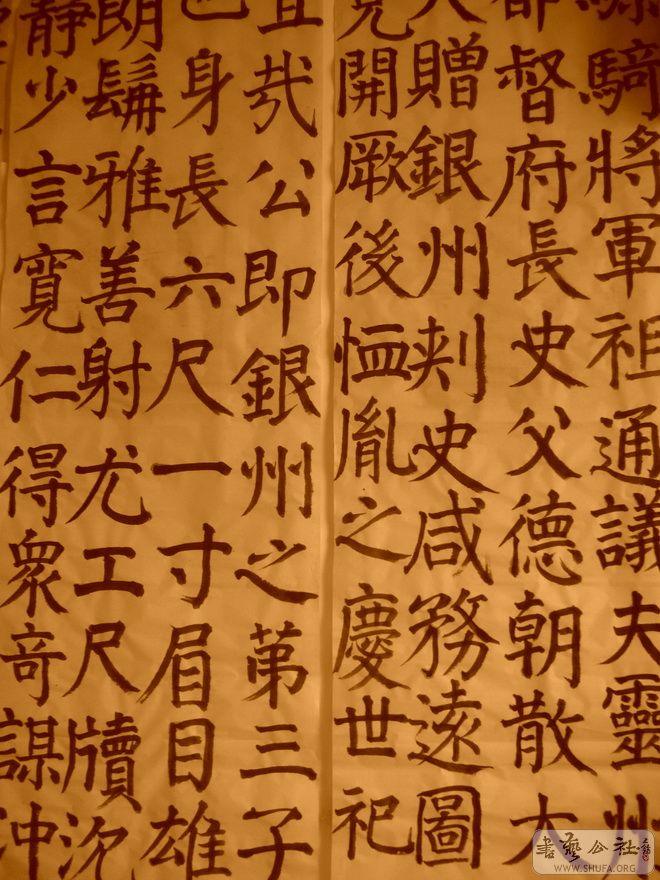 騎將軍祖通議夫靈州
都督府長史父德朝散大
夫贈銀州刾史咸務遠圖
克開厥後恤胤之慶世祀
宜哉公即銀州之苐三子
也身長六尺一寸眉目雄
朗雅善射尤工尺牘沉
靜少言寬仁得眾奇謀沖
書藝公社
WWW.SHUFA.ORG